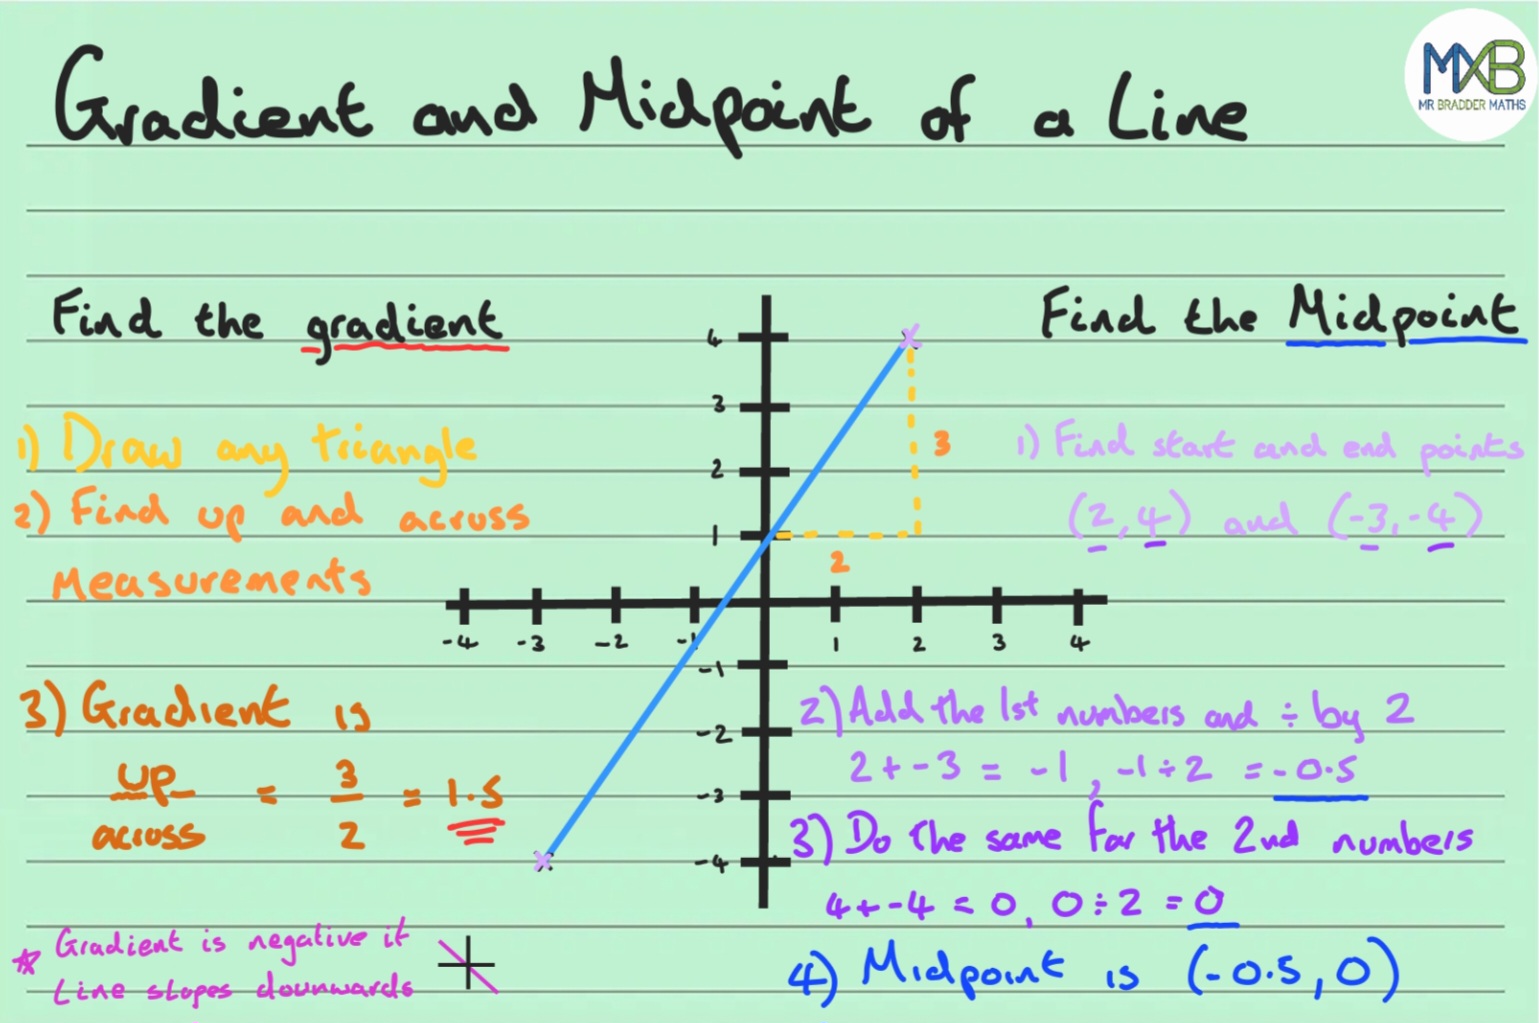 Gradient and Midpoint of a Line
MXB
MR BRADDER MATHS
Find the gradient
1) Draw any triangle
2) Find up and across
measurements
3) Gradient is
up/across = 3/2 = 1.5
* Gradient is negative if
Line slopes downwards
4
3
2
1
-4 -3 -2 -1 1 2 3 4
-1
-2
-3
-4
3
2
Find the Midpoint
1) Find start and end points
(2,4) and (-3,-4)
2) Add the 1st numbers and ÷ by 2
2+-3 = -1, -1÷2 = -0.5
3) Do the same for the 2nd numbers
4+-4 = 0, 0÷2 = 0
4) Midpoint is (-0.5,0)